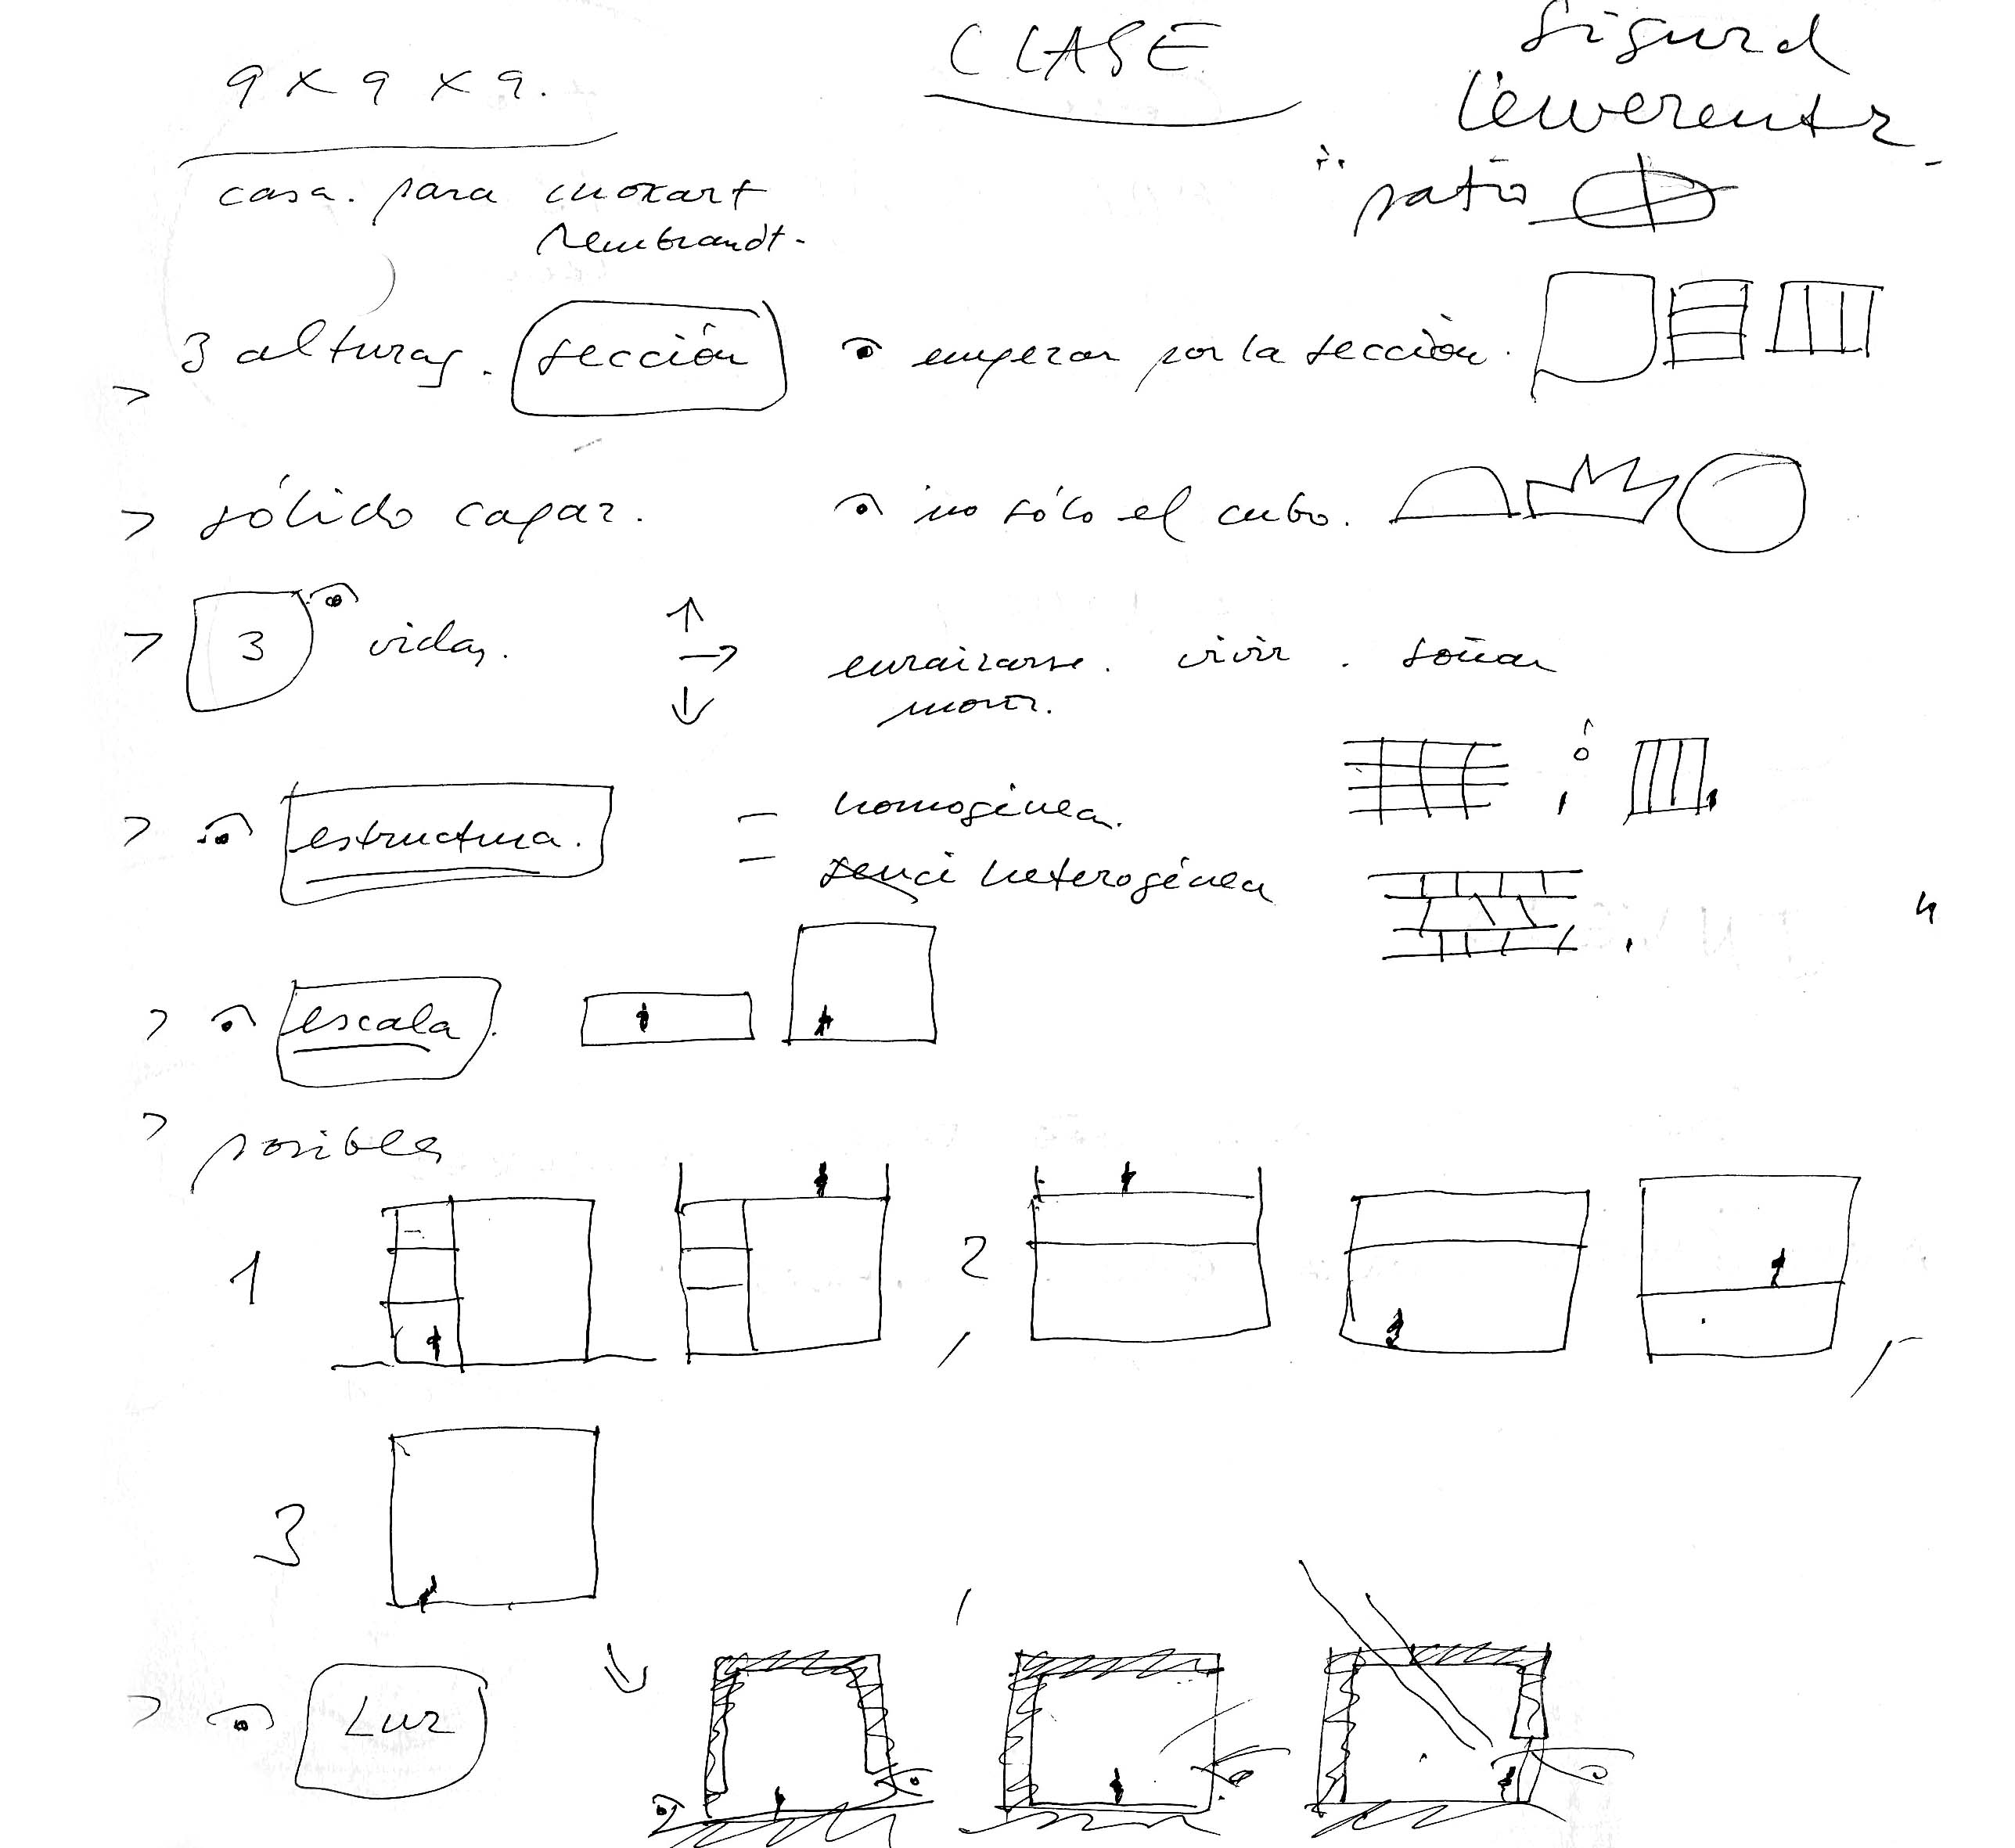 9 x 9 x 9.
CLASE
Sigurd
Lewerentz.
casa. para mozart
rembrandt.
patio
3 alturas. sección empezar por la sección.
> sólido capaz. no sólo el cubo.
> 3 vidas. ↑ → ↓ enraizarse. vivir. soñar
morir.
> estructura. = homogénea. ó
heterogénea
> escala.
> posibles
1
2
3
> Luz